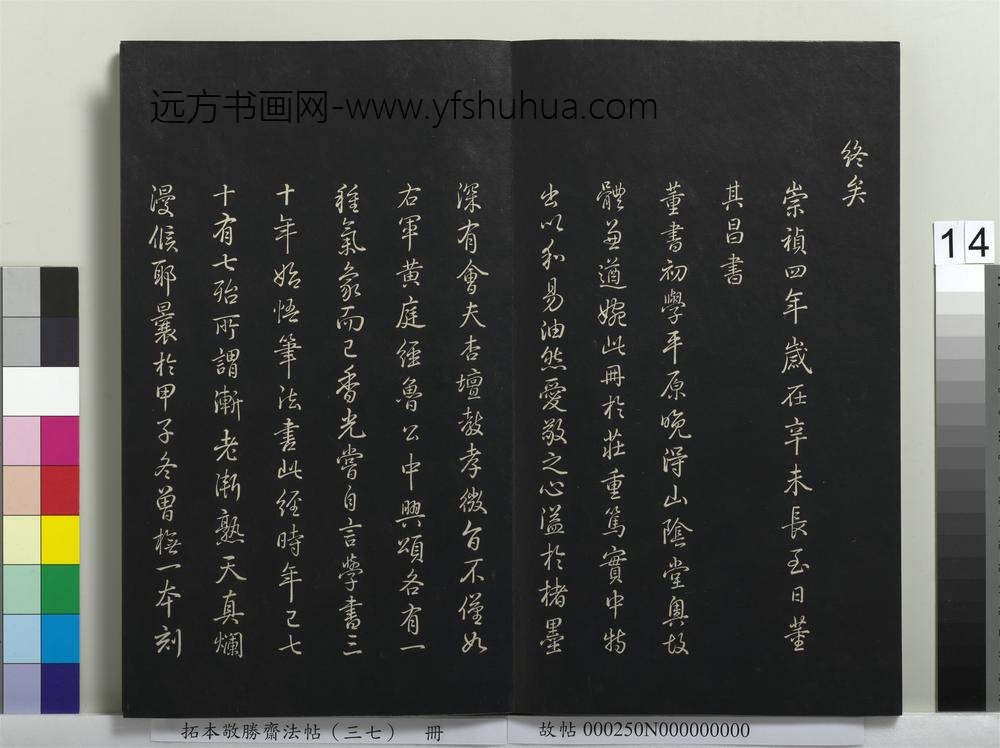 远方书画网-www.yfshuhua.com
終矣
崇禎四年歲在辛未長至日董
其昌書
董書初學平原晚得山陰堂奧故
體兼遒婉此冊於莊重篤實中特
出以和易油然愛敬之心溢於楮墨
深有會夫杏壇教孝微旨不僅如
右軍黄庭經魯公中興頌各有一
種氣象而已香光嘗自言學書三
十年始悟筆法書此經時年已七
十有七殆所謂漸老漸熟天真爛
漫候耶曩於甲子冬曾橅一本刻
14
拓本敬勝齋法帖（三七） 冊
故帖 000250N000000000